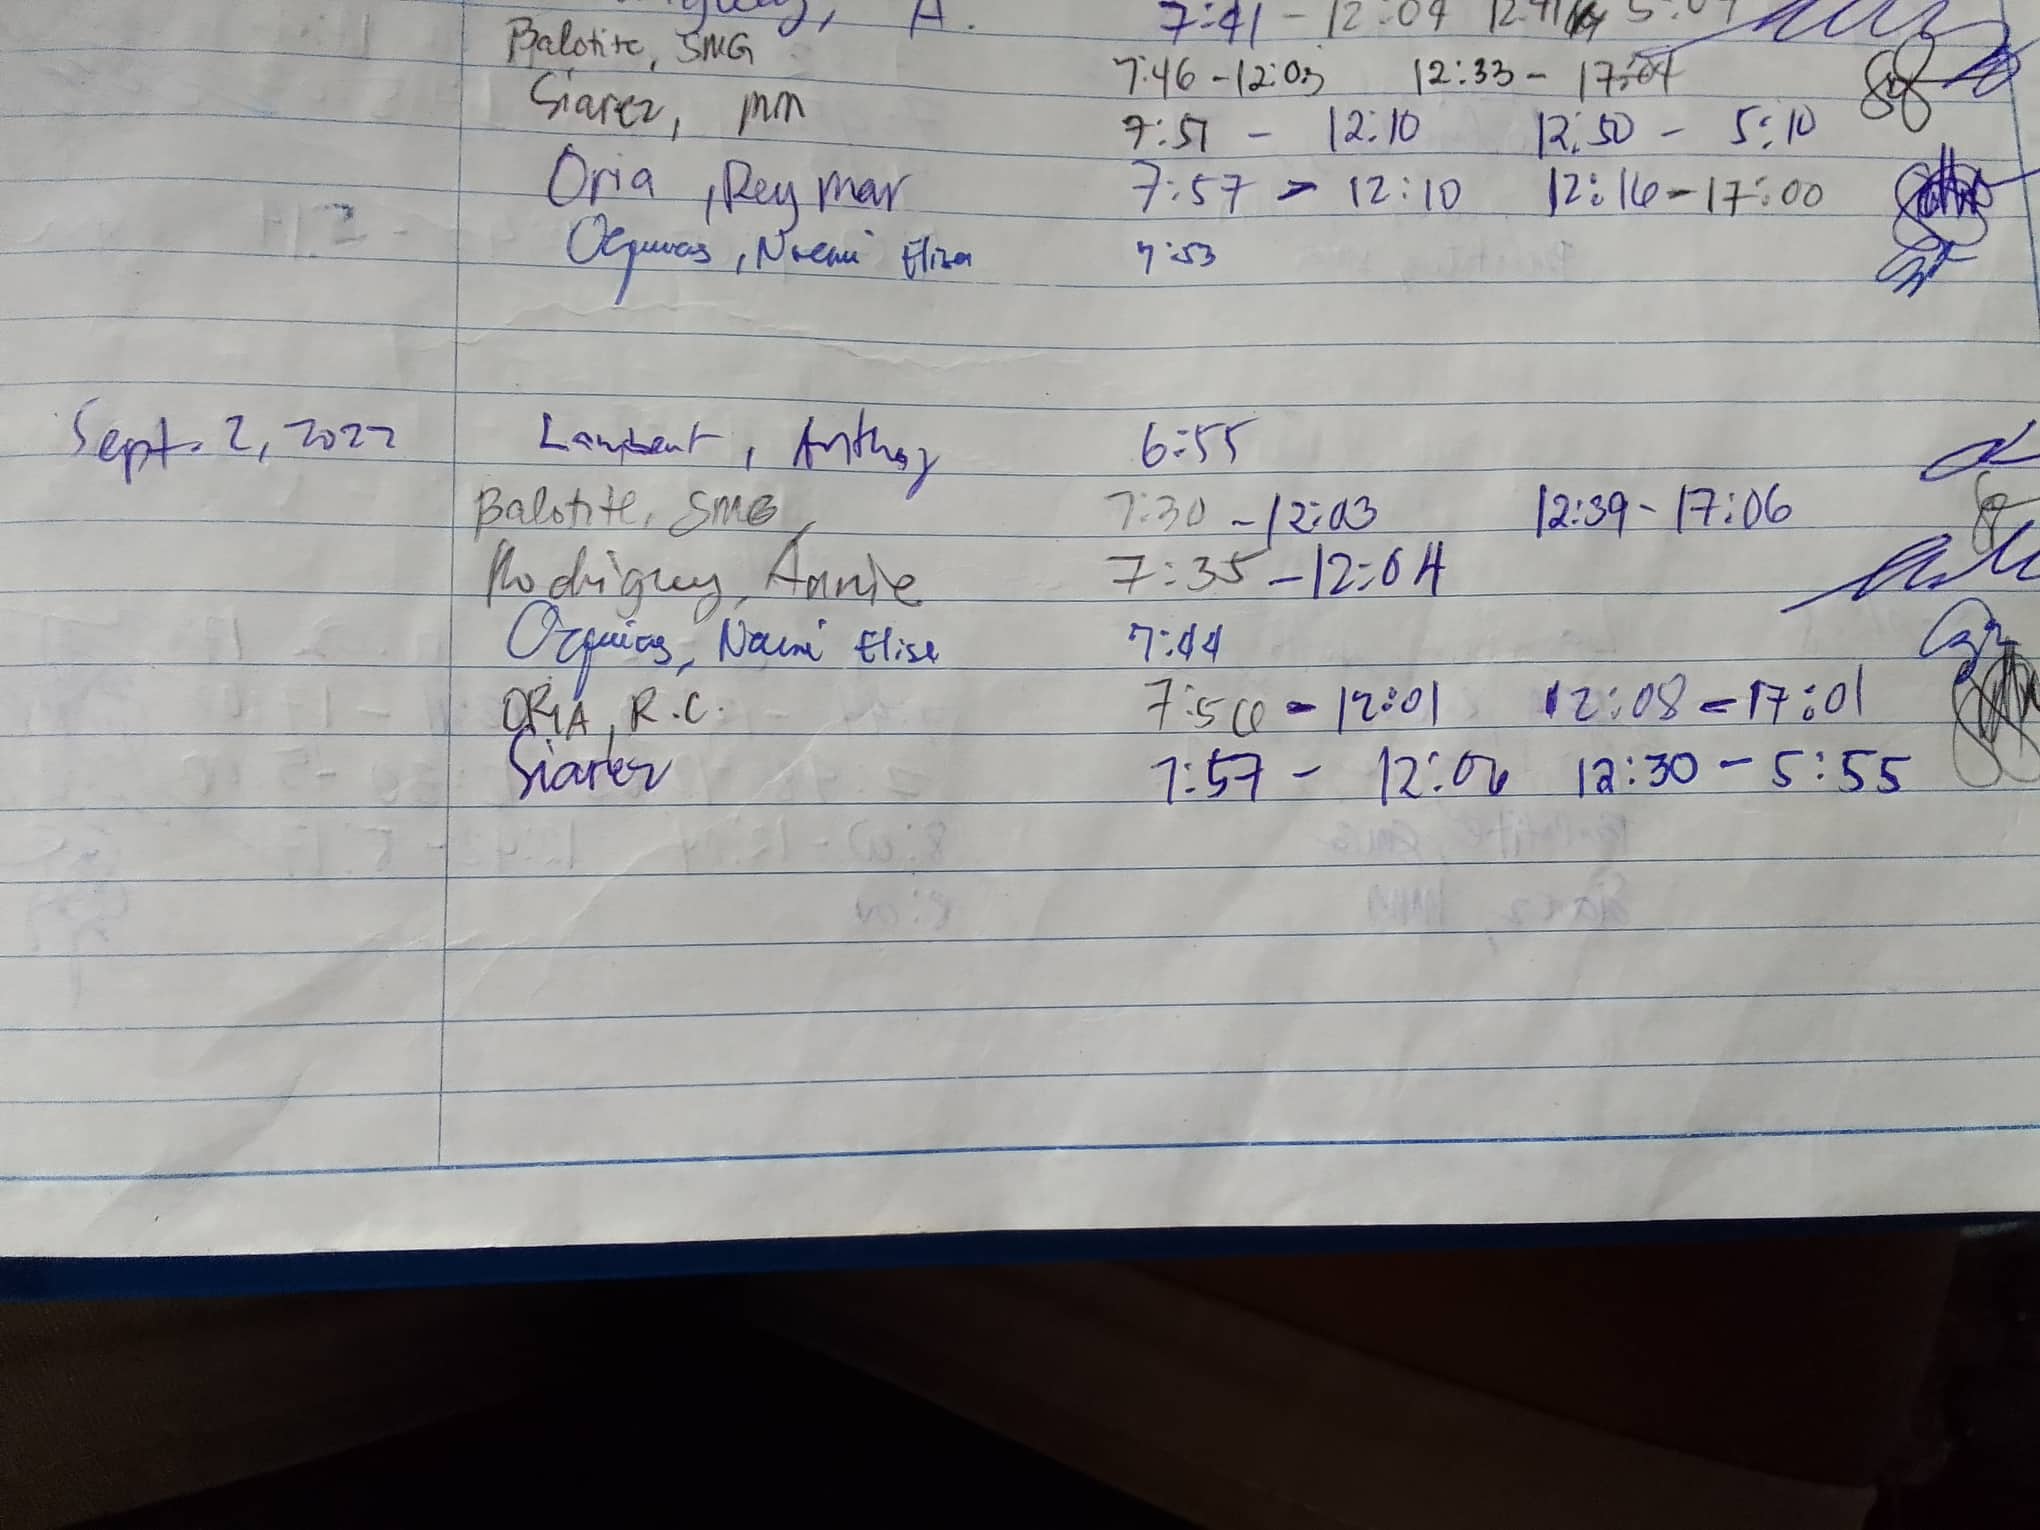 A. 7:41 - 12:04
Balotite, SMG 7:46 - 12:03 12:33 - 17:04
Siarez, MM 7:57 - 12:10 12:50 - 5:10
Oria, Reymar 7:57 - 12:10 12:16 - 17:00
Noemi Elisa 7:53
Sept. 2, 2022 Lambent, Anthoy 6:55
Balotite, SMG 7:30 - 12:03 12:39 - 17:06
Rodriguez, Annie 7:35 - 12:04
Noemi Elisa 7:44
ORIA, R.C. 7:56 - 12:01 12:08 - 17:01
Siarez 7:57 - 12:06 12:30 - 5:55